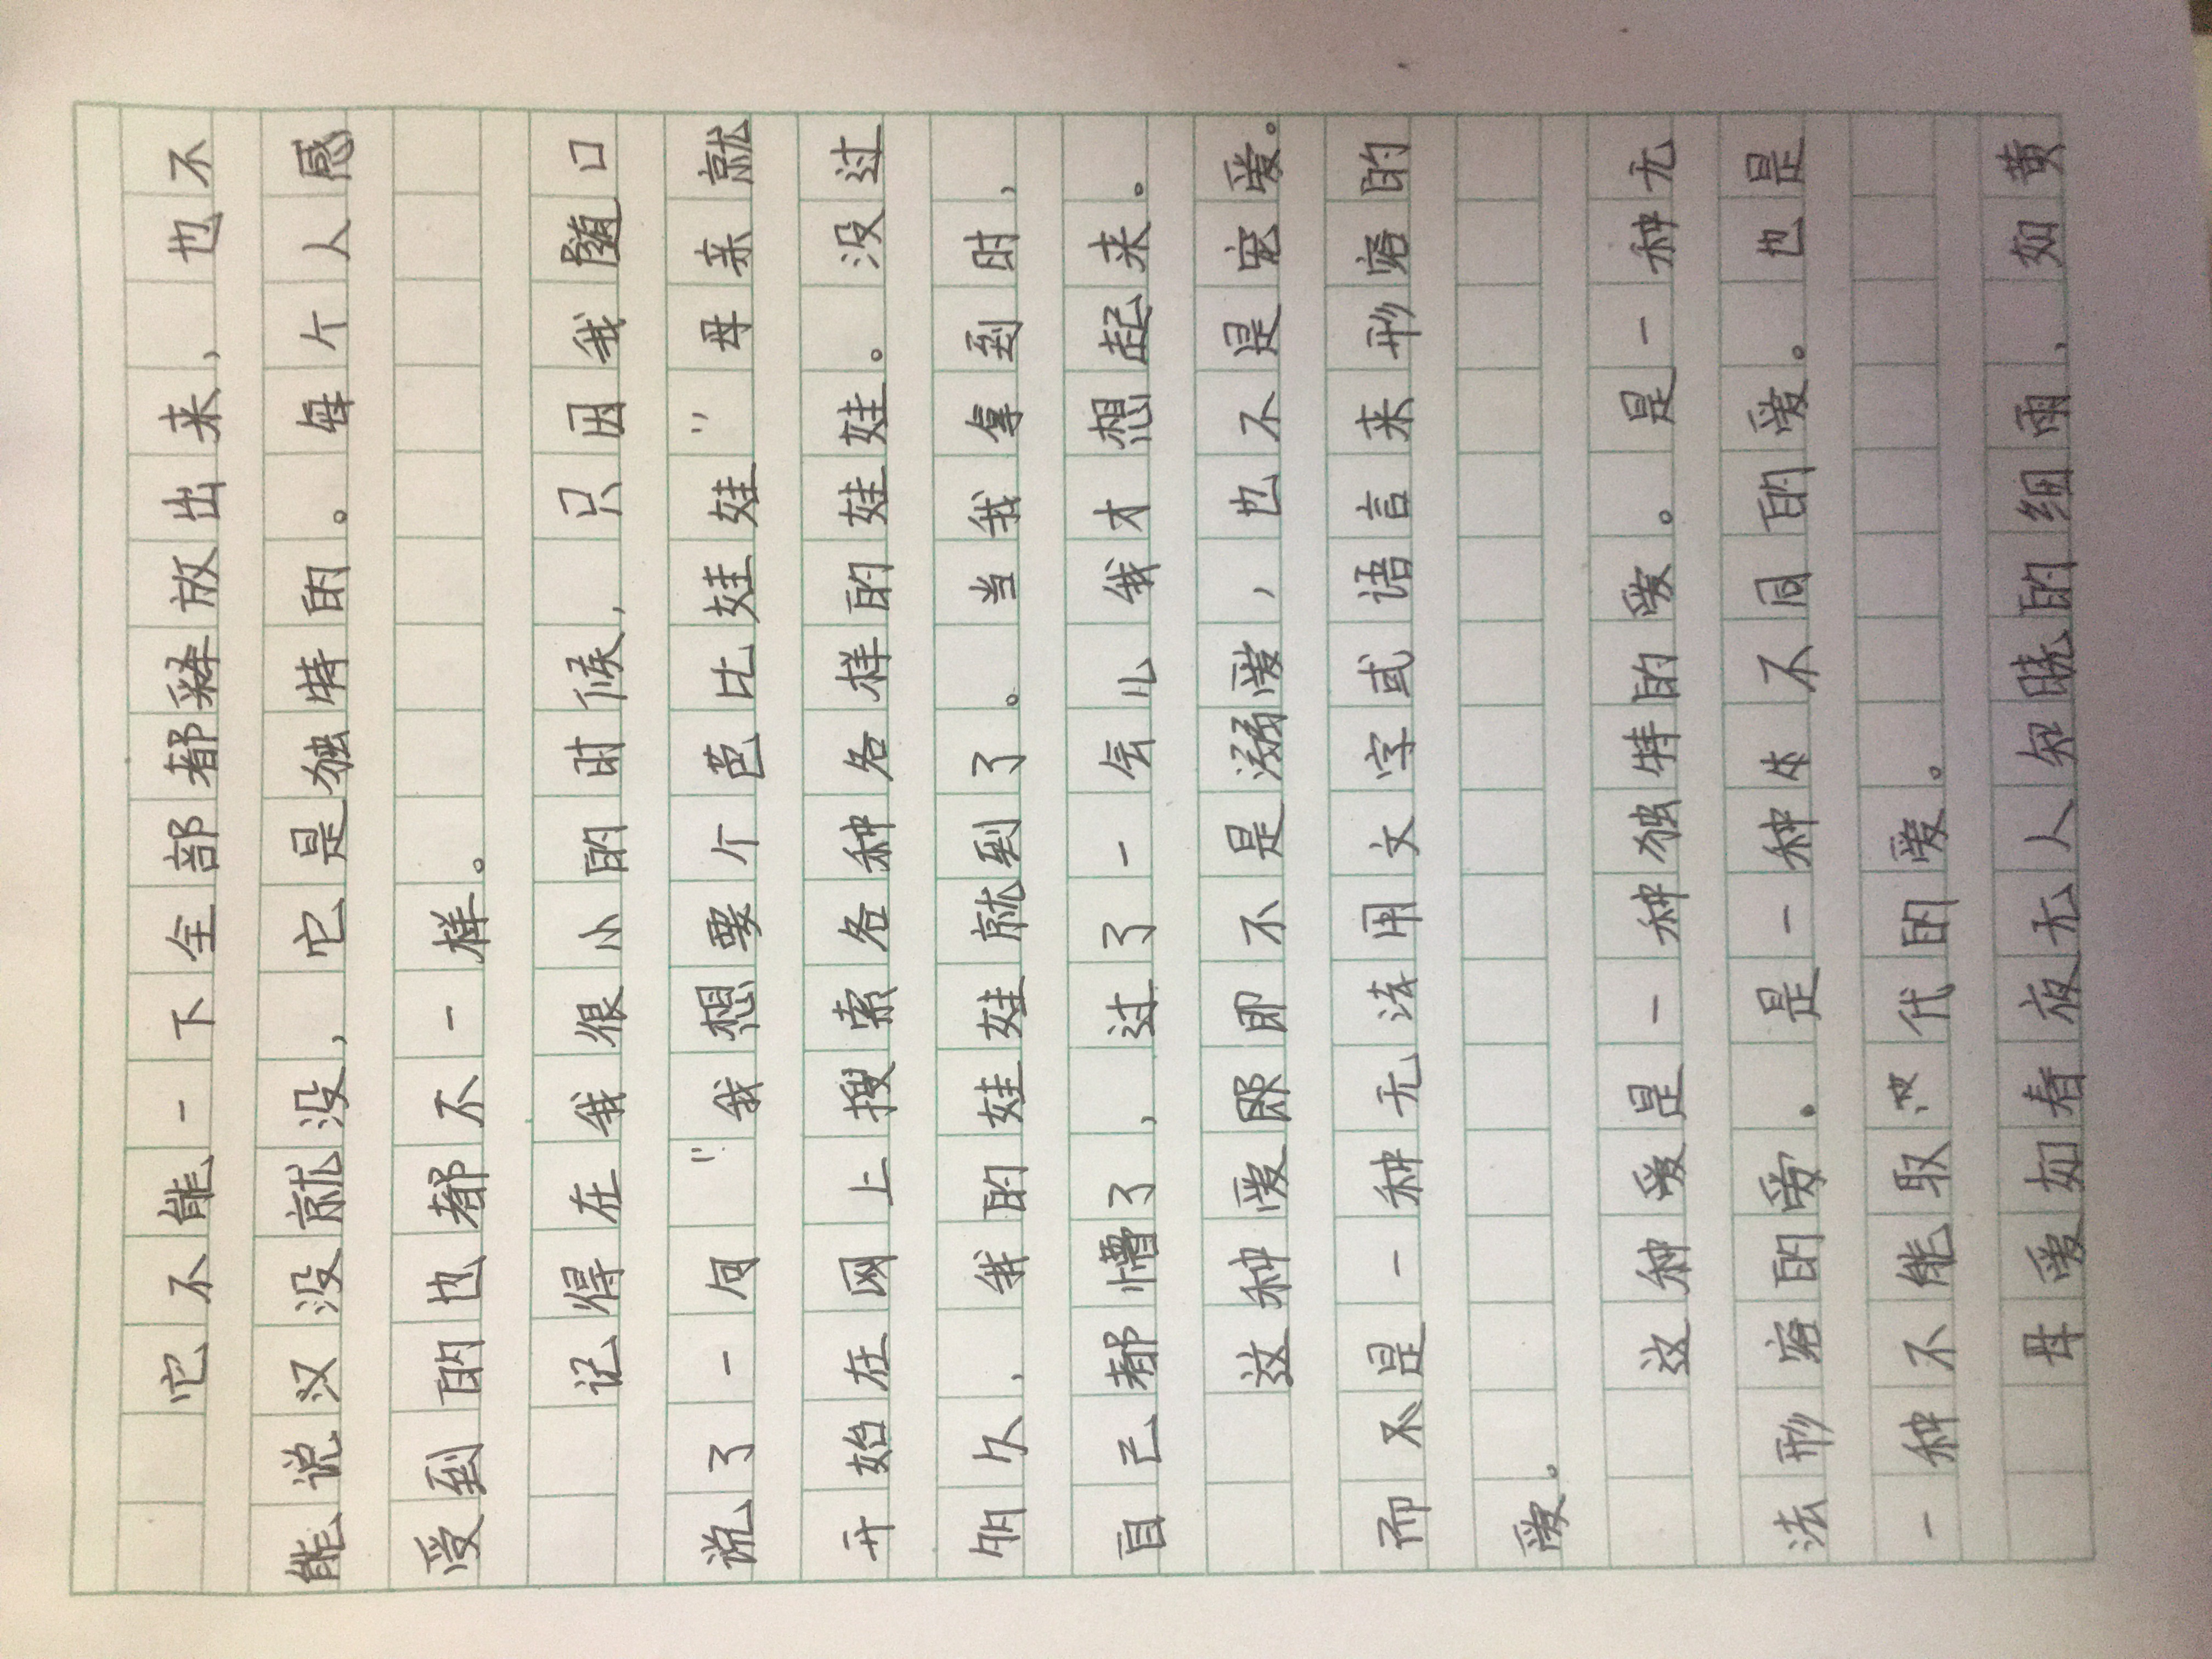 它不能一下全部都释放出来,也不
能说汉没就没,它是独特的。每个人感
受到的也都不一样。
记得在我很小的时候,只因我随口
说了一句"我想要个芭比娃娃"母亲就
开始在网上搜索各种各样的娃娃。没过
多久,我的娃娃就到了。当我拿到时,
自己都懵了,过了一会儿我才想起来。
这种爱即不是溺爱,也不是宠爱。
而不是一种无法用文字或语言来形容的
爱。
这种爱是一种独特的爱。是一种无
法形容的爱。是一种不同的爱。也是
一种不能取被代的爱。
母爱如春夜无人知晓的细雨、如黄